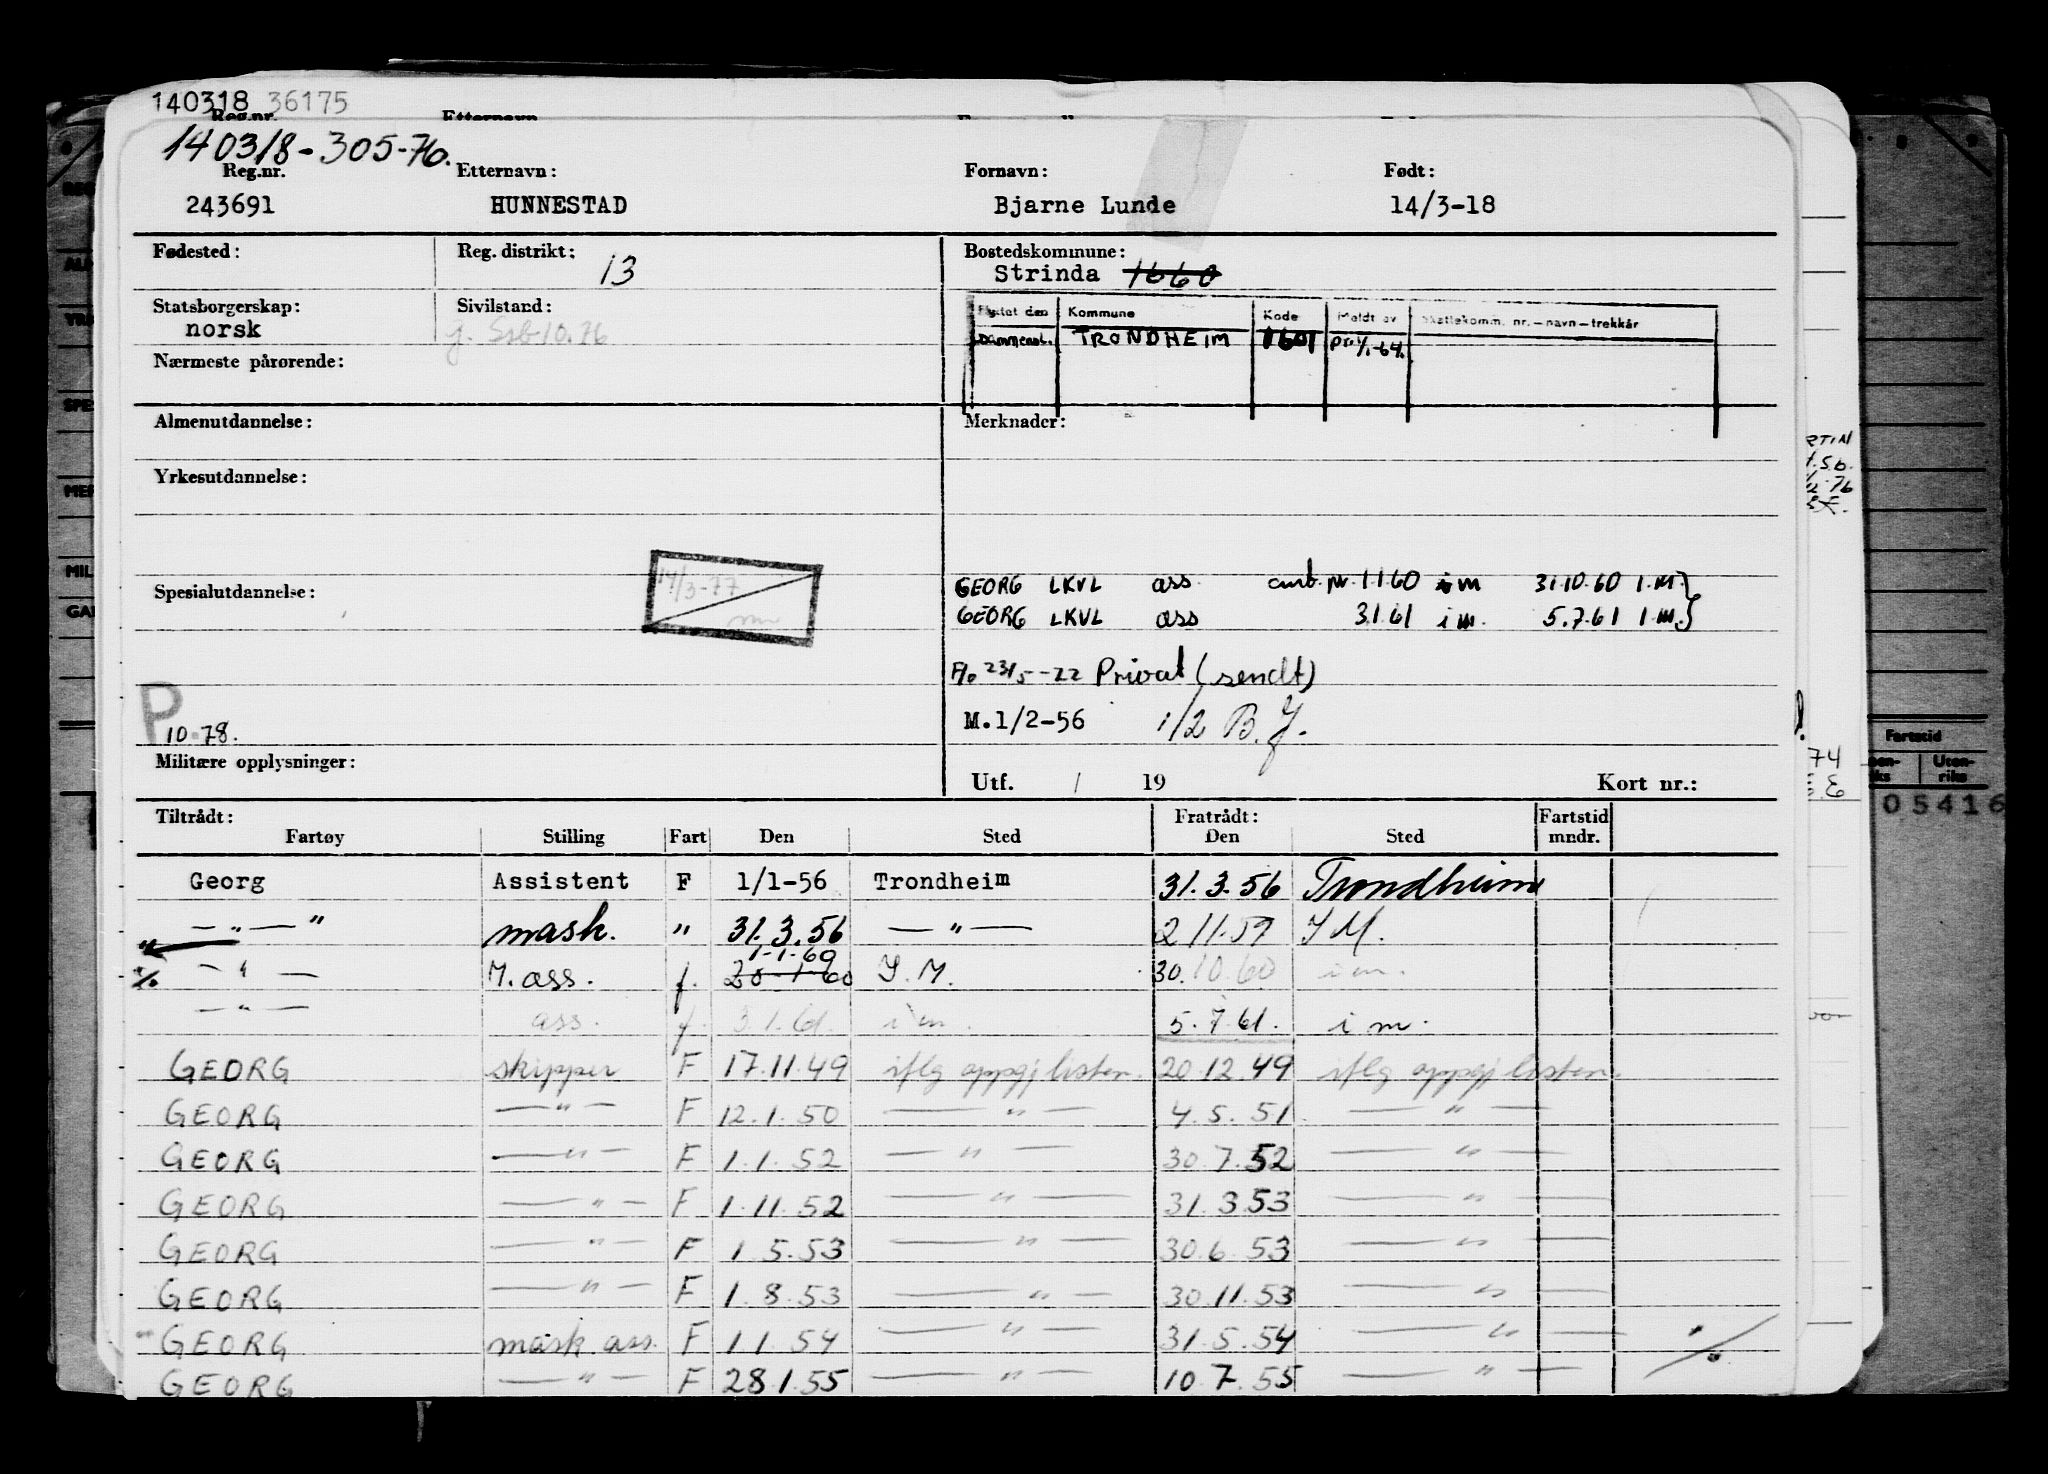 140318 36175
Reg.nr. Etternavn
140318-305-76.
Reg.nr. Etternavn: Fornavn: Født:
243691 HUNNESTAD Bjarne Lunde 14/3-18
Fødested: Reg. distrikt: 13 Bostedskommune:
Strinda 1660
Statsborgerskap: Sivilstand:
norsk g. Ssb 10.76
Flyttet den Kommune Kode Meldt av Skattekomm. nr.-navn-trekkår
Sammensl. TRONDHEIM 1601 pr. 1/1-64.
Nærmeste pårørende:
Almenutdannelse: Merknader:
Yrkesutdannelse:
14/3-77
Spesialutdannelse:
GEORG LKVL ass. 1160 i m 31.10.60 I.M.}
GEORG LKVL ass 3.1.61 i m. 5.7.61 I.M.}
23/5--22 Privat (sendt)
P
10.78.
M.1/2-56 1/2 B.J.
Militære opplysninger:
Utf. / 19 Kort nr.:
Tiltrådt: Fratrådt: Fartstid
Fartøy Stilling Fart Den Sted Den Sted mndr.
Georg Assistent F 1/1-56 Trondheim 31.3.56 Trondheim
— " — " mask. " 31.3.56 — " — 2 11.59 I M.
1.1.60
— " — M. ass. f. 20 1 60 I. M. 30.10.60 i m.
— " — ass. f. 3.1.61. i m. 5.7.61. i m.
GEORG skipper F 17.11.49 iflg oppgj listen. 20.12.49 iflg oppgj listen.
GEORG — " — F 12.1.50 — " — 4.5.51. — " —
GEORG — " — F 1.1.52 — " — 30.7.52 — " —
GEORG — " — F 1.11.52 — " — 31.3.53 — " —
GEORG — " — F 1.5.53 — " — 30.6.53 — " —
GEORG — " — F 1.8.53 — " — 30.11.53 — " —
GEORG mask. ass. F 1 1.54 — " — 31.5.54 — " — ·/·
GEORG — " — F 28.1.55 — " — 10.7.55 — " —
Fartstid
Uten-
riks
05416